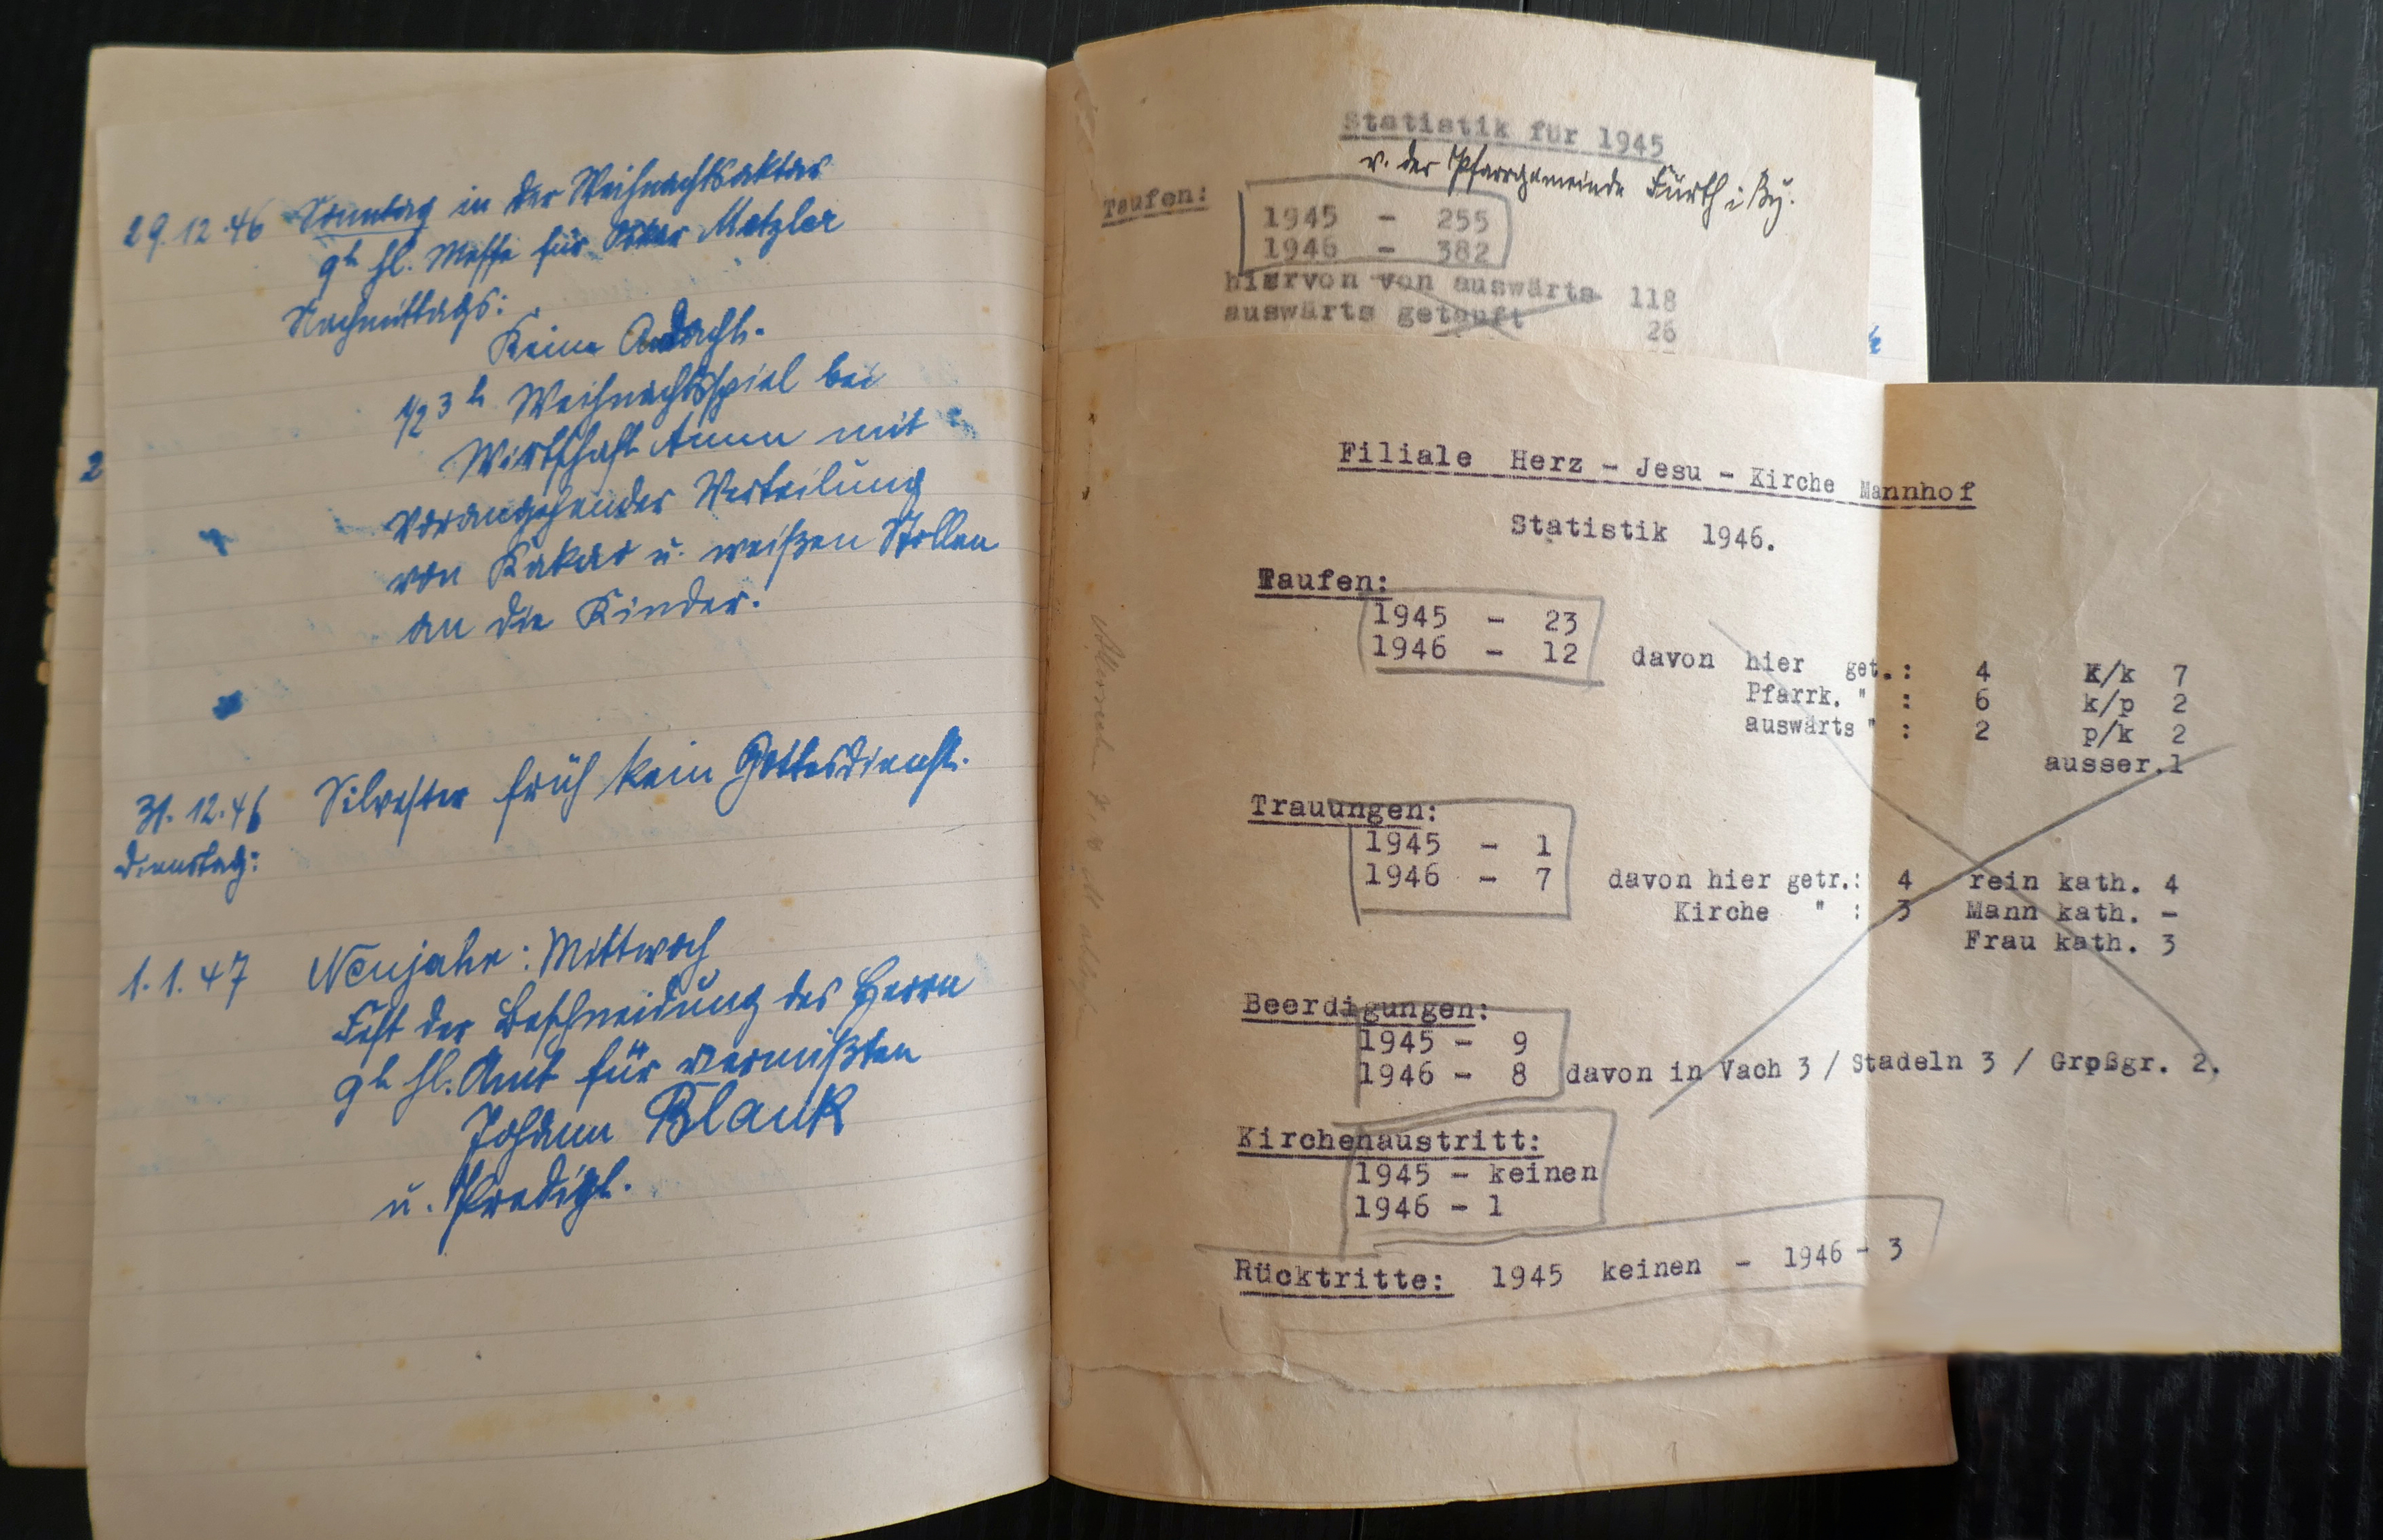 29.12.46 Sonntag in der Weihnachtsoktav
9h hl. Messe für Oskar Metzler
Nachmittags:
Keine Andacht.
1/2 3 h Weihnachtsspiel bei
Wirtschaft mit
vorangehender Verteilung
von Kakao u. weißen Stollen
an die Kinder.
31.12.46 Silvester früh kein Gottesdienst.
Dienstag:
1.1.47 Neujahr: Mittwoch
Fest der Beschneidung des Herrn
9h hl. Amt für vermißten
Johann Blank
u. Predigt.
2
Statistik für 1945
v. der Pfarrgemeinde Fürth i. By.
Taufen:
1945 - 255
1946 - 382
hiervon von auswärts 118
auswärts getauft 26
Filiale Herz - Jesu - Kirche Mannhof
Statistik 1946.
Taufen:
1945 - 23
1946 - 12 davon hier get.: 4 K/k 7
Pfarrk. " : 6 k/p 2
auswärts " : 2 p/k 2
ausser.1
Trauungen:
1945 - 1
1946 - 7 davon hier getr.: 4 rein kath. 4
Kirche " : 3 Mann kath. -
Frau kath. 3
Beerdigungen:
1945 - 9
1946 - 8 davon in Vach 3 / Stadeln 3 / Großgr. 2.
Kirchenaustritt:
1945 - keinen
1946 - 1
Rücktritte: 1945 keinen - 1946 - 3